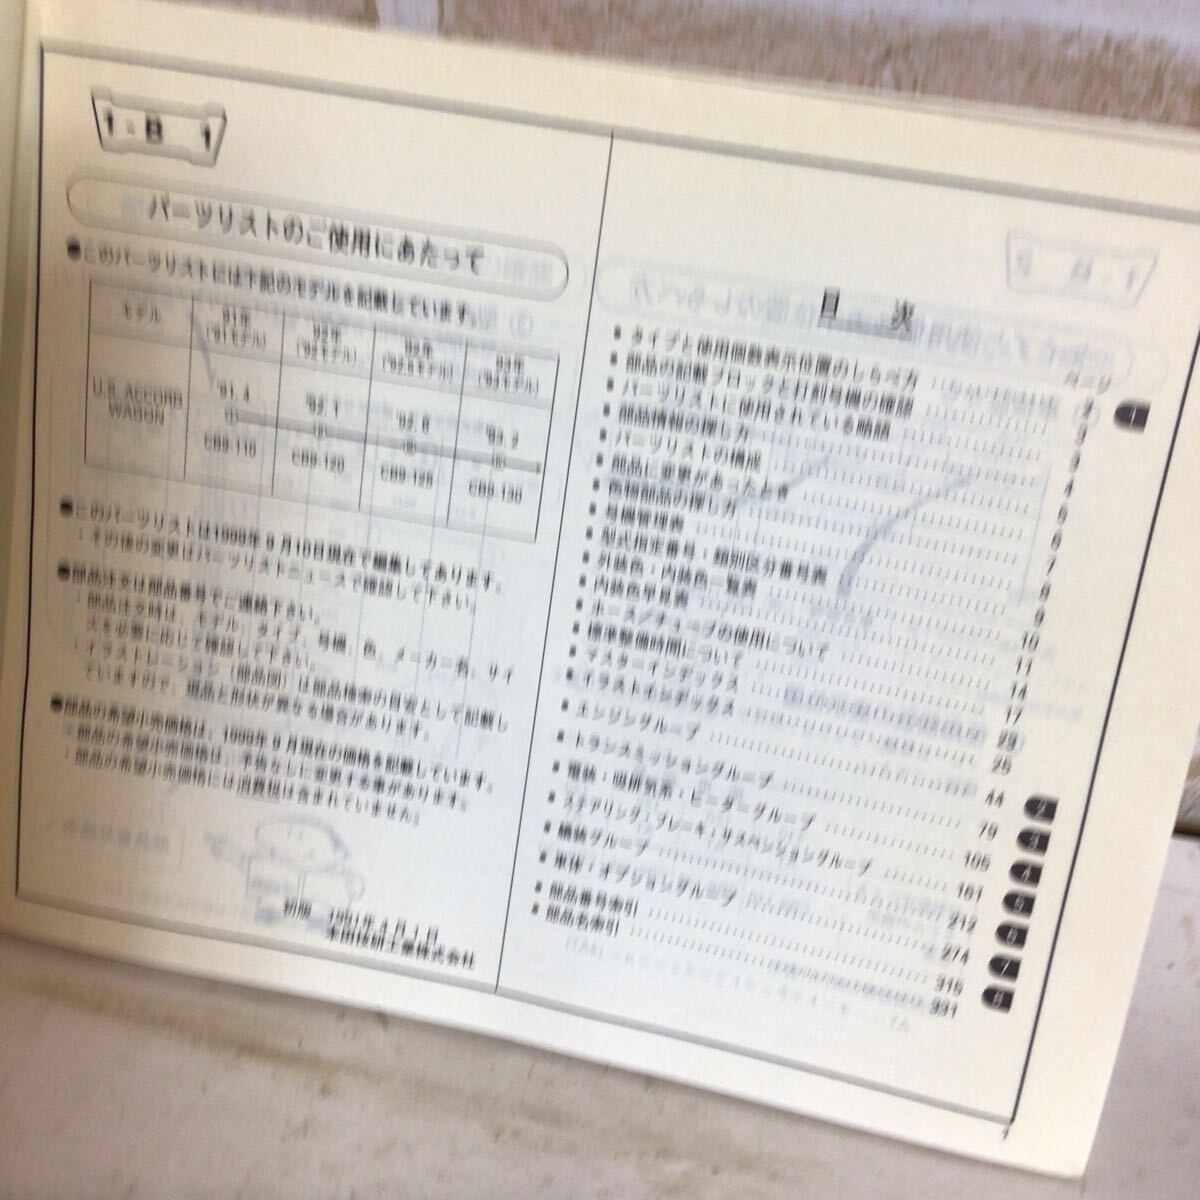 1-B 1
パーツリストのご使用にあたって
●このパーツリストには下記のモデルを記載しています。
モデル
91年 ('91モデル)
92年 ('92モデル)
93年 ('93モデル)
U.S. ACCORD WAGON
'91.4
'92.1
'93.2
CB9-110
CB9-120
CB9-125
CB9-130
●このパーツリストは1999年9月10日現在で編集してあります。
・その後の変更はパーツリストニュースで確認して下さい。
●部品注文は部品番号でご連絡下さい。
・部品注文時は、モデル、タイプ、号機、色、メーカー名、サイ
ズを必要に応じて確認して下さい。
・イラストレーション（部品図）は部品検索の目安として記載し
ていますので、現品と形状が異なる場合があります。
●部品の希望小売価格は、1999年9月現在の価格を記載しています。
・部品の希望小売価格は、予告なしに変更する事があります。
・部品の希望小売価格には消費税は含まれていません。
初版 1991年4月1日
本田技研工業株式会社
目 次
ページ
■タイプと使用個数表示位置のしらべ方 2
■部品の記載ブロックと打刻号機の確認
■パーツリストに使用されている略語
■部品情報の探し方
■パーツリストの構成
■部品に変更があったとき
■
■号機管理表
■型式指定番号・類別区分番号表
■外装色・内装色一覧表
■内装色早見表
■ホース/チューブの使用について
■標準整備時間について
■マスターインデックス
■イラストインデックス
■エンジングループ 44
■トランスミッショングループ 79
■電装・吸排気系・ヒーターグループ 105
■ステアリング・ブレーキ・サスペンショングループ 161
■艤装グループ 212
■車体・オプショングループ 274
■部品番号索引 315
■部品名索引 331